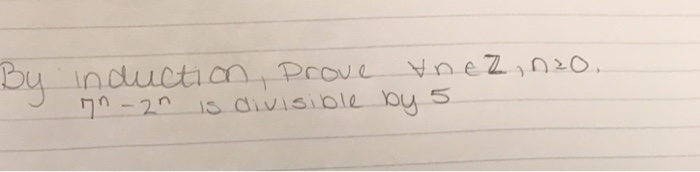 By induction, prove ∀n∈Z, n≥0,
7ⁿ - 2ⁿ is divisible by 5